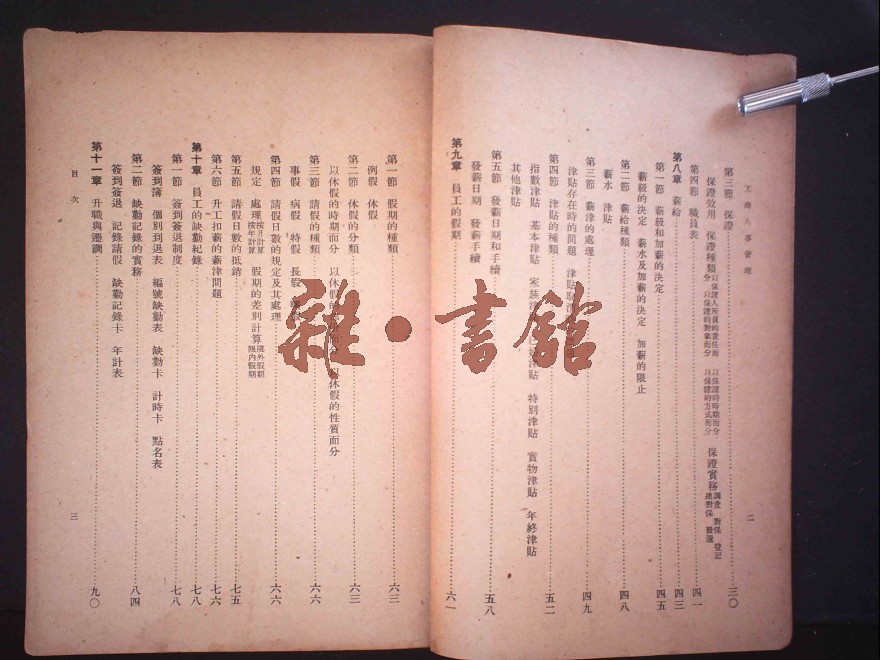 工商人事管理
第三節 保證……三〇
保證效用 保證種類 以保證人所負的責任而分 以保證的對象而分 以保證的時期而分 以保證的方式而分 保證實務 調查 對保 登記 總對保 簽退
第四節 職員表……四一
第八章 薪給……四三
第一節 薪級和加薪的決定……四五
薪級的決定 薪水及加薪的決定 加薪的限止
第二節 薪給種類……四八
薪水 津貼
第三節 薪津的處理……四九
津貼存在時的問題 津貼取
第四節 津貼的種類……五二
指數津貼 基本津貼 家族 津貼 特別津貼 實物津貼 年終津貼
其他津貼
第五節 發薪日期和手續……五八
發薪日期 發薪手續
第九章 員工的假期……六一
二
第一節 假期的種類……六三
例假 休假
第二節 休假的分類……六三
以休假的時期而分 以休假的 而分 以休假的性質而分
第三節 請假的種類……六六
事假 病假 特假 長假
第四節 請假日數的規定及其處理……六六
規定 處理 按月計算 按年計算 假期的差別計算 限外假期 限內假期
第五節 請假日數的抵銷……七五
第六節 升工扣薪的薪津問題……七六
第十章 員工的缺勤紀錄……七八
第一節 簽到簽退制度……七八
簽到簿 個別到退表 編號缺勤表 缺勤卡 計時卡 點名表
第二節 缺勤記錄的實務……八四
簽到簽退 記錄請假 缺勤記錄卡 年計表
第十一章 升職與遷調……九〇
目次
三
雜·書館